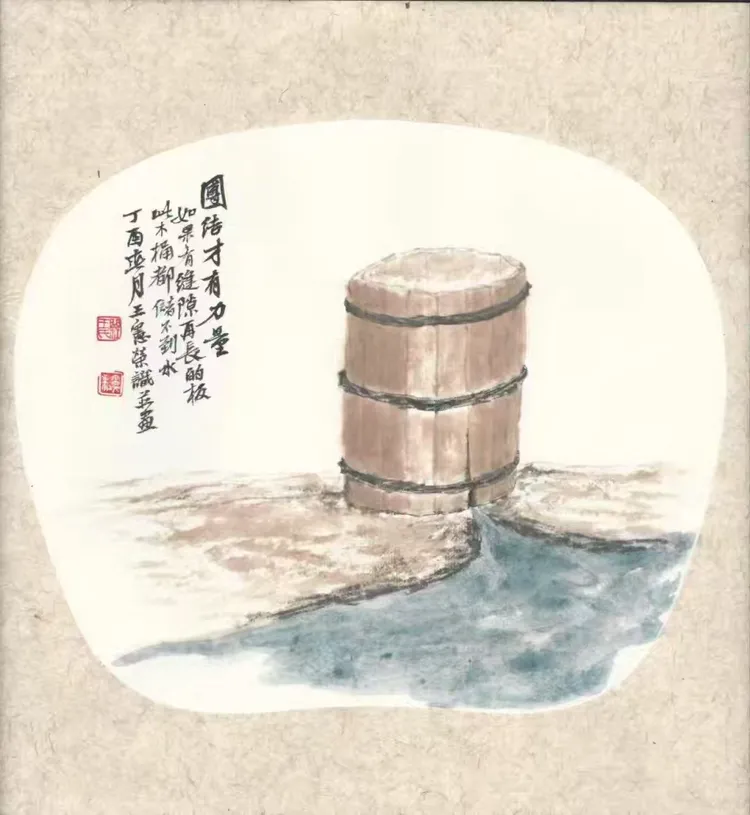 團结才有力量
如果有缝隙再長的板
此木桶都储不到水
丁酉
月王憲荣識并畫